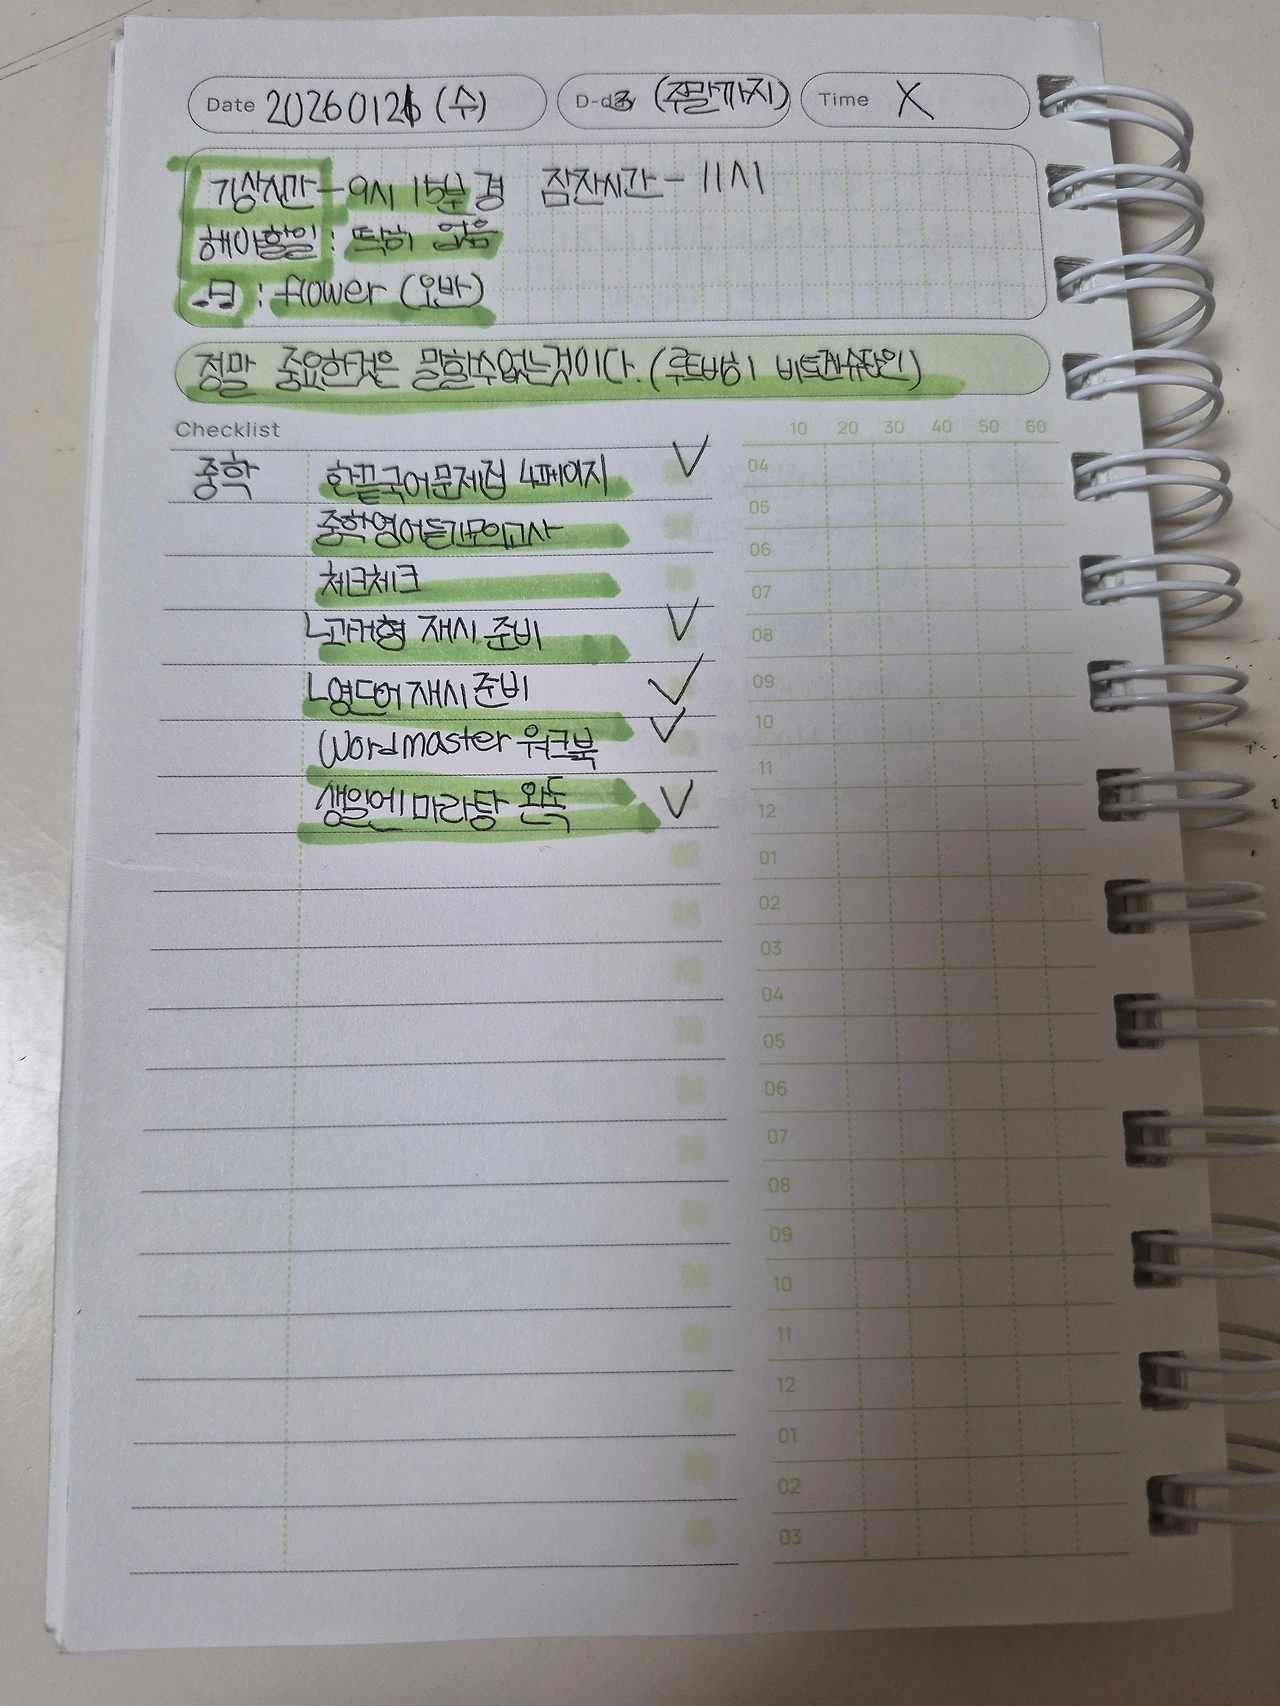 Date 20260121 (수) D-day 3 (주말까지) Time X
기상시간 - 9시 15분 경 잠잔시간 - 11시
해야할일 : 딱히 없음
♫ : flower (오바)
정말 중요한것은 말할수없는것이다. (루트비히 비트겐슈타인)
Checklist
10 20 30 40 50 60
중학 한끝국어문제집 4페이지 ✓
중학영어듣기모의고사
체크체크
ㄴ과거형 재시 준비 ✓
ㄴ영단어 재시 준비 ✓
Word master 워크북 ✓
생일에 마라탕 완독 ✓
04
05
06
07
08
09
10
11
12
01
02
03
04
05
06
07
08
09
10
11
12
01
02
03